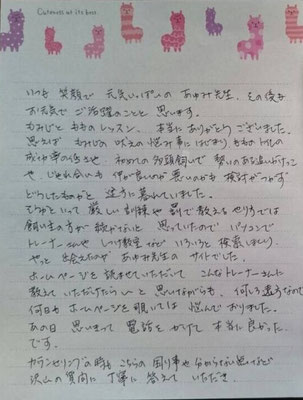 Cuteness at its best.
いつも 笑顔で 元気いっぱいの あゆみ先生、その後も
お元気で ご活躍のことと 思います。
もみじと ももの レッスン、本当に ありがとう ございました。
思えば もみじの 吠えの 悩み事に はじまり、ももの トイレの
成功率の低さや、初めての 多頭飼いで 勢いのある追いかけっこ
や、じゃれ合いも 仲が良いのか 悪いのかも 検討がつかず
どうしたものかと 途方に暮れていました。
そうかといって 厳しい訓練や 罰で教える やり方では
飼い主の方が 続かないと 思っていたので パソコンで
トレーナーさんや しつけ教室など いろいろと 検索しまくり、
やっと 出会えたのが あゆみ先生の サイトでした。
ホームページを 読ませていただいて こんなトレーナーさんに
教えて いただけたら〜と 思いながらも、何しろ遠方なので
何日も ホームページを 覗いては 悩んで おりました。
あの日 思いきって 電話を かけて 本当に良かった
です。
カウンセリングの時も こちらの 困り事や 分からない事など
沢山の 質問に 丁寧に 答えて いただき